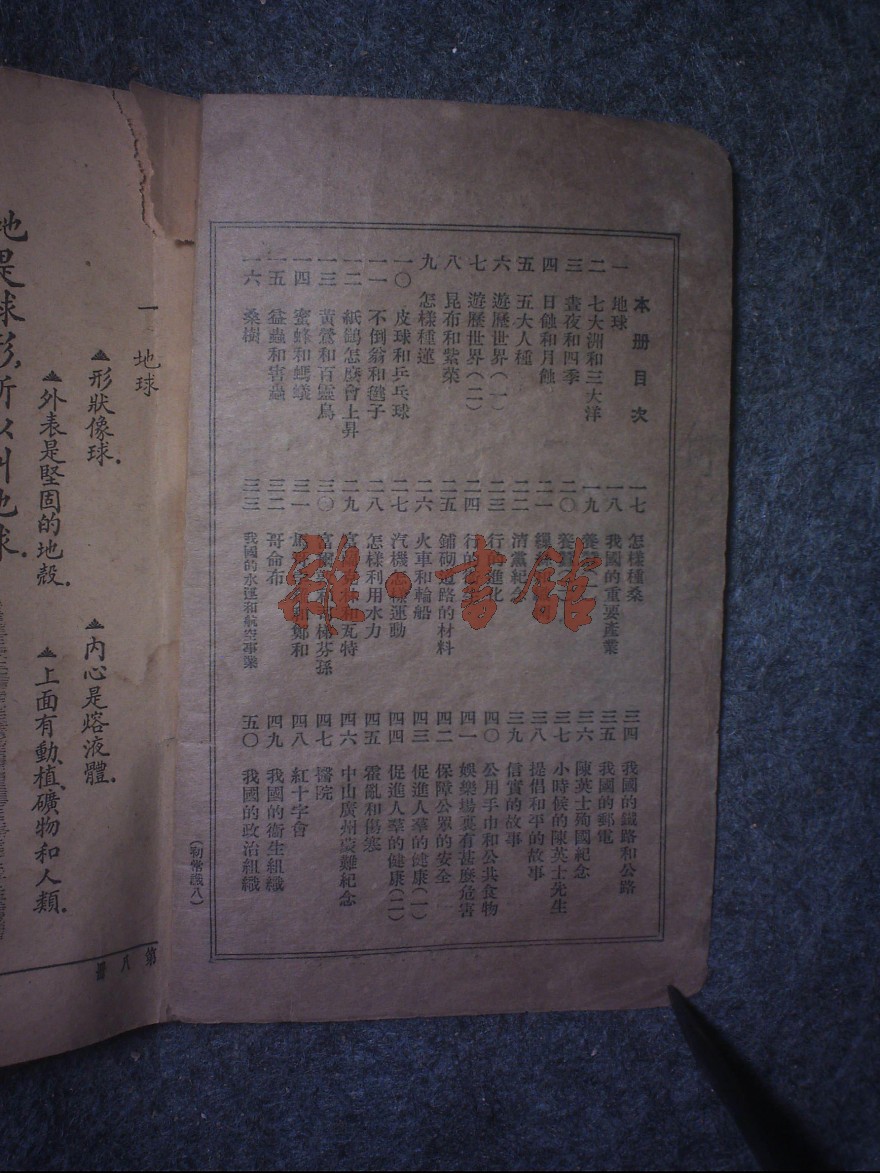 本册目次
一 地球
二 七大洲和三大洋
三 晝夜和四季
四 日蝕和月蝕
五 五大人種
六 遊歷世界(一)
七 遊歷世界(二)
八 昆布和紫菜
九 怎樣種蓮
一〇 皮球和乒乓球
一一 不倒翁和毽子
一二 紙鷂怎麼會上昇
一三 黃鶯和百靈鳥
一四 蜜蜂和螞蟻
一五 益蟲和害蟲
一六 桑樹
一七 怎樣種桑
一八 我國的重要產業
一九 養
二〇 養
二一
二二 清黨紀念
二三 行的進化
二四 行的
二五 鋪砌道路的材料
二六 火車和輪船
二七 汽機怎樣運動
二八 怎樣利用水力
二九 瓦特
三〇 富 芬孫
三一 馬 和鄭和
三二 哥命布
三三 我國的水運和航空事業
三四 我國的鐵路和公路
三五 我國的郵電
三六 陳英士殉國紀念
三七 小時候的陳英士先生
三八 提倡和平的故事
三九 信實的故事
四〇 公用手巾和公共食物
四一 娛樂場裏有甚麼危害
四二 保障公眾的安全
四三 促進人羣的健康(一)
四四 促進人羣的健康(二)
四五 霍亂和傷寒
四六 中山廣州蒙難紀念
四七 醫院
四八 紅十字會
四九 我國的衞生組織
五〇 我國的政治組織
(初常識八)
雜·書館
一 地球
形狀像球.
內心是熔液體.
外表是堅固的地殼.
上面有動、植、礦物和人類.
地是球形,所以叫地球.
第八册